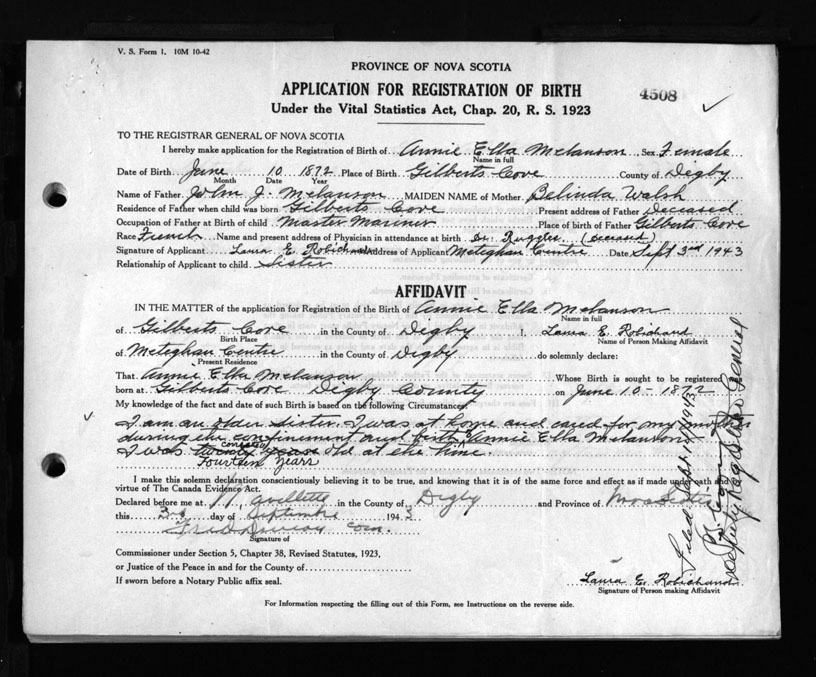 V. S. Form 1. 10M 10-42
PROVINCE OF NOVA SCOTIA
APPLICATION FOR REGISTRATION OF BIRTH
4508
Under the Vital Statistics Act, Chap. 20, R. S. 1923
TO THE REGISTRAR GENERAL OF NOVA SCOTIA
I hereby make application for the Registration of Birth of Annie Ella Melanson Sex Female
Name in full
Date of Birth June 10 1872 Place of Birth Gilberts Cove County of Digby
Month Date Year
Name of Father John J. Melanson MAIDEN NAME of Mother Belinda Walsh
Residence of Father when child was born Gilberts Cove Present address of Father Deceased
Occupation of Father at Birth of child Master Mariner Place of birth of Father Gilberts Cove
Race French Name and present address of Physician in attendance at birth Dr. Ruggles (deceased)
Signature of Applicant Laura E. Robichaud Address of Applicant Meteghan Centre Date Sept 3rd 1943
Relationship of Applicant to child Sister
AFFIDAVIT
IN THE MATTER of the application for Registration of the Birth of Annie Ella Melanson
Name in full
of Gilberts Cove in the County of Digby I Laura E. Robichaud
Birth Place Name of Person Making Affidavit
of Meteghan Centre in the County of Digby do solemnly declare:
Present Residence
That Annie Ella Melanson Whose Birth is sought to be registered was
born at Gilberts Cove Digby County on June 10 - 1872
My knowledge of the fact and date of such Birth is based on the following Circumstances
I am an older sister. I was at home and cared for my mother
during the confinement and birth of Annie Ella Melanson
I was twenty years old at the time.
Fourteen Years
I make this solemn declaration conscientiously believing it to be true, and knowing that it is of the same force and effect as if made under oath and by
virtue of The Canada Evidence Act.
Declared before me at in the County of Digby and Province of Nova Scotia
this 3rd day of Septembre 1943
Signature of
Commissioner under Section 5, Chapter 38, Revised Statutes, 1923,
or Justice of the Peace in and for the County of
If sworn before a Notary Public affix seal.
Laura E. Robichaud
Signature of Person making Affidavit
For Information respecting the filling out of this Form, see Instructions on the reverse side.
Filed Sept. 1943
Deputy Registrar General